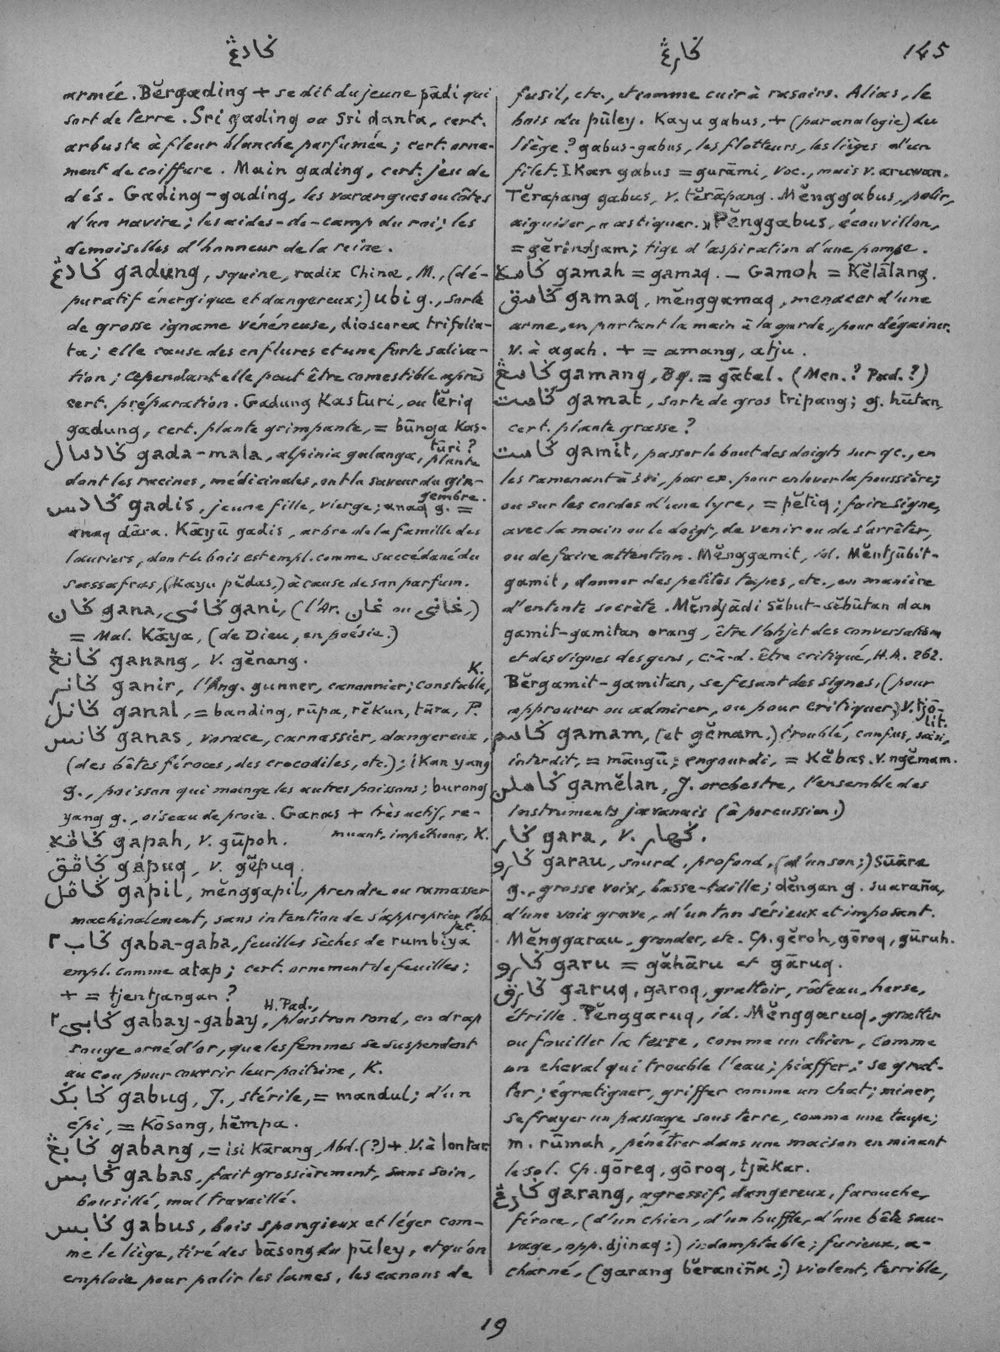 ݢادڠ
ݢارڠ
145
armée. Bĕrgading + se dit du jeune pādi qui
sort de terre. Sri gading ou Sri danta, cert.
arbuste à fleur blanche parfumée; cert. orne-
ment de coiffure. Main gading, cert. jeu de
dés. Gading-gading, les varangues ou côtes
d'un navire; les aides-de-camp du roi; les
demoiselles d'honneur de la reine.
ݢادڠ gadung, squine, radix Chinæ, M., (dé-
puratif énergique et dangereux;) ubi g., sorte
de grosse igname vénéneuse, dioscorea trifolia-
ta; elle cause des enflures et une forte saliva-
tion; cependant elle peut être comestible après
cert. préparation. Gadung Kasturi, ou tĕriq
gadung, cert. plante grimpante, = būnga Kas-
tūri?
ݢادمال gada-mala, alpinia galanga, plante
dont les racines, médicinales, ont la saveur du gin-
gembre.
ݢادس gadis, jeune fille, vierge; anaq g. =
anaq dāra. Kāyū gadis, arbre de la famille des
lauriers, dont le bois est empl. comme succédané du
sassafras, (Kayu pĕdas,) à cause de son parfum.
ݢان gana, ݢاني gani, (l'Ar. غان ou غاني,)
= Mal. Kāya, (de Dieu, en poésie.)
ݢانڠ ganang, v. gĕnang.
ݢانر ganir, l'Ang. gunner, canonnier; constable, K.
ݢانل ganal, = banding, rūpa, rĕkun, tāra, P.
ݢانس ganas, vorace, carnassier, dangereux,
(des bêtes féroces, des crocodiles, etc.); iKan yang
g., poisson qui mange les autres poissons; burong
yang g., oiseau de proie. Ganas + très actif, re-
muant, impétueux, K.
ݢاڤه gapah, v. gūpoh.
ݢاڤق gapuq, v. gĕpuq.
ݢاڤل gapil, mĕnggapil, prendre ou ramasser
machinalement, sans intention de s'approprier l'ob-
jet.
ݢاب٢ gaba-gaba, feuilles sèches de rumbiya
empl. comme atap; cert. ornement de feuilles;
+ = tjentjangan?
ݢابي٢ gabay-gabay, H. Pad., plastron rond, en drap
rouge orné d'or, que les femmes se suspendent
au cou pour couvrir leur poitrine, K.
ݢابݢ gabug, J., stérile, = mandul; d'un
épi, = Kōsong, hĕmpa.
ݢابڠ gabang, = isi Karang, Abd. (?) + v. à lontar
ݢابس gabas, fait grossièrement, sans soin,
bousillé, mal travaillé.
ݢابس gabus, bois spongieux et léger com-
me le liège, tiré des bāsong du pūley, et qu'on
emploie pour polir les lames, les canons de
fusil, etc., et comme cuir à rasoirs. Alias, le
bois du pūley. Kayu gabus, + (par analogie) du
liège? gabus-gabus, les flotteurs, les lièges d'un
filet. IKan gabus = gurāmi, voc., mais v. aruwan.
Tĕrapang gabus, v. tĕrāpang. Mĕnggabus, polir,
aiguiser, astiquer. Pĕnggabus, écouvillon,
= gĕrindjam; tige d'aspiration d'une pompe.
ݢامه gamah = gamaq. — Gamoh = Kĕlālang.
ݢامق gamaq, mĕnggamaq, menacer d'une
arme, en portant la main à la garde, pour dégainer.
v. à agah. + = amang, atju.
ݢامڠ gamang, Bg. = gātal. (Men.? Pad.?)
ݢامت gamat, sorte de gros tripang; g. hūtan,
cert. plante grasse?
ݢامت gamit, passer le bout des doigts sur qc., en
les ramenant à soi, par ex. pour enlever la poussière;
ou sur les cordes d'une lyre, = pĕtiq; faire signe,
avec la main ou le doigt, de venir ou de s'arrêter,
ou de faire attention. Mĕnggamit, id. Mĕntjūbit-
gamit, donner des petites tapes, etc., en manière
d'entente secrète. Mĕndjādi sĕbut-sĕbūtan dan
gamit-gamitan orang, être l'objet des conversations
et des signes des gens, c-à-d. être critiqué, H.A. 262.
Bĕrgamit-gamitan, se fesant des signes, (pour
approuver ou admirer, ou pour critiquer,) v. tjō-
lit.
ݢامم gamam, (et gĕmam.) troublé, confus, saisi,
interdit, = māngū; engourdi, = Kĕbas. v. ngĕmam.
ݢاملن gamĕlan, J. orchestre, l'ensemble des
instruments javanais (à percussion.)
ݢار gara, v. ݢهار.
ݢارو garau, sourd, profond, (d'un son;) Sūāra
g., grosse voix, basse-taille; dĕngan g. suaraña,
d'une voix grave, d'un ton sérieux et imposant.
Mĕnggarau, gronder, etc. Cp. gĕroh, gōroq, gūruh.
ݢارو garu = găhāru et gāruq.
ݢارق garuq, garoq, grattoir, râteau, herse,
étrille. Pĕnggaruq, id. Mĕnggaruq, gratter
ou fouiller la terre, comme un chien, comme
un cheval qui trouble l'eau; piaffer; se grat-
ter; égratigner, griffer comme un chat; miner,
se frayer un passage sous terre, comme une taupe;
m. rūmah, pénétrer dans une maison en minant
le sol. Cp. gōreq, gōroq, tjākar.
ݢارڠ garang, agressif, dangereux, farouche,
féroce, (d'un chien, d'un buffle, d'une bête sau-
vage, opp. djinaq;) indomptable; furieux, a-
charné, (garang bĕraniña;) violent, terrible,
19